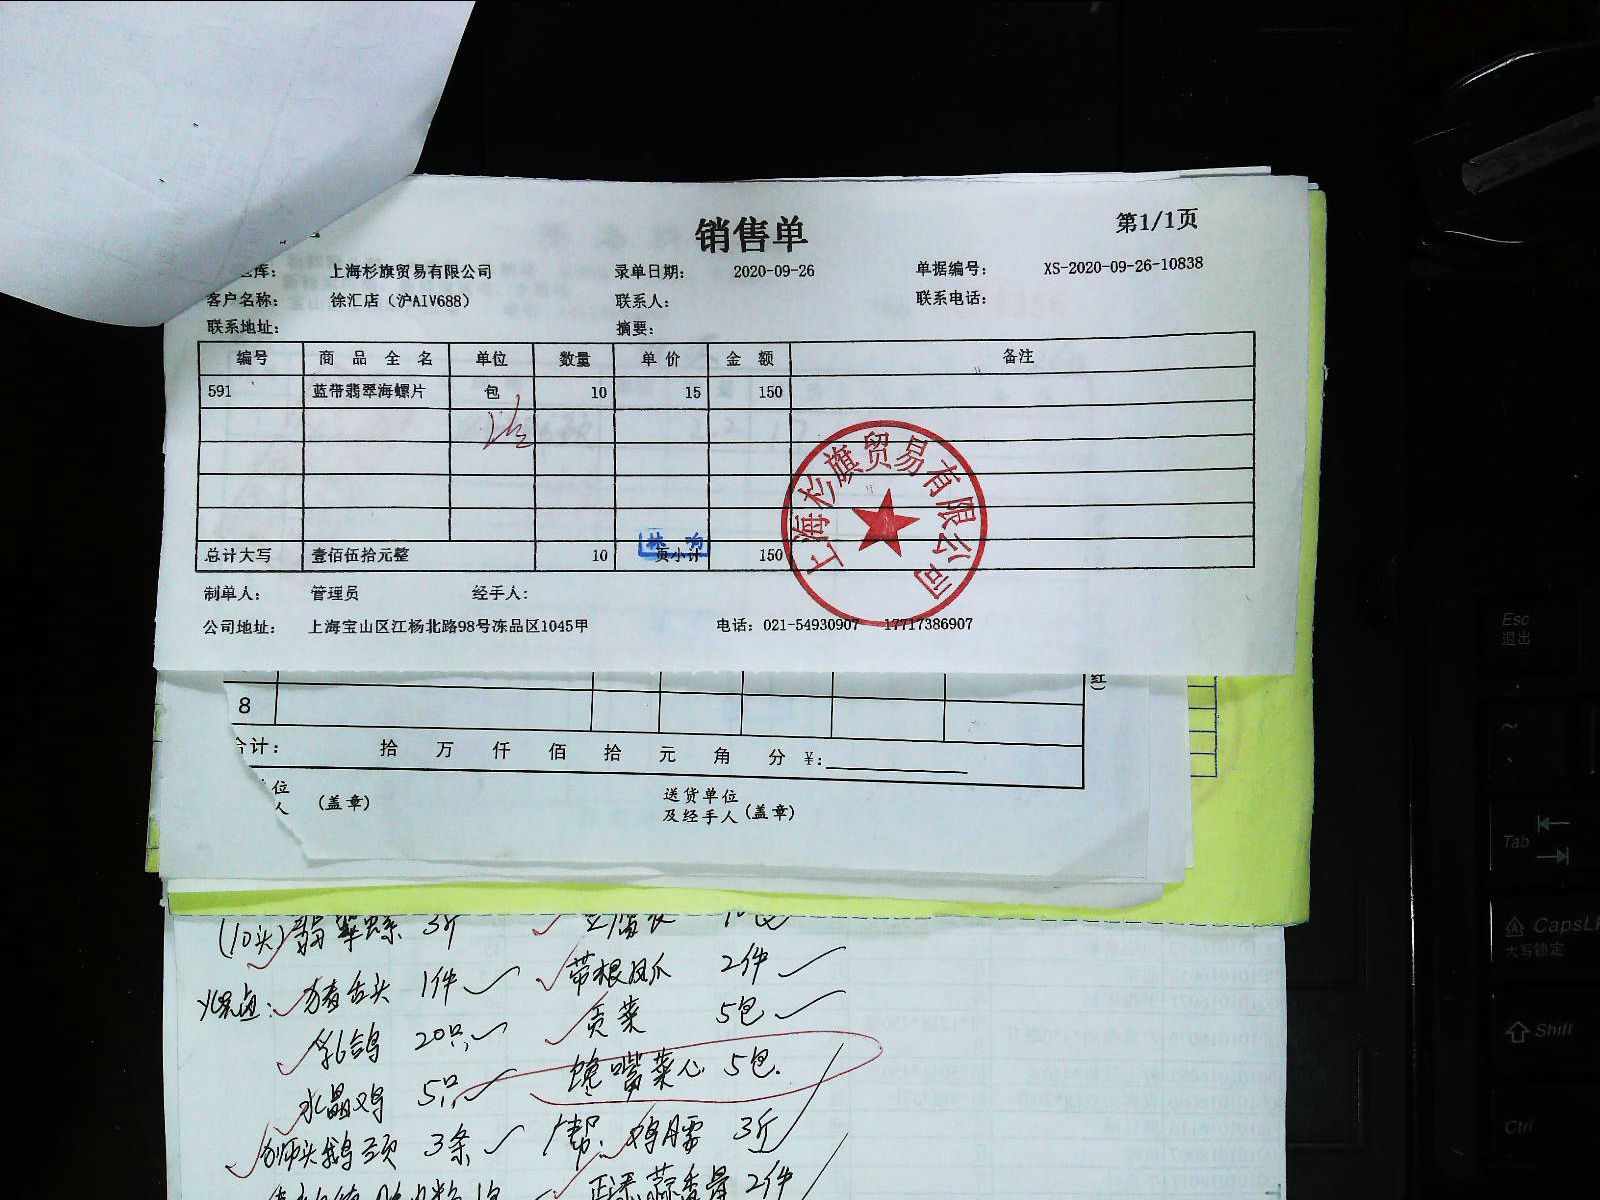 销售单
第1/1页
库： 上海杉旗贸易有限公司 录单日期： 2020-09-26 单据编号： XS-2020-09-26-10838
客户名称： 徐汇店（沪AIV688） 联系人： 联系电话：
联系地址： 摘要：
编号 商品全名 单位 数量 单价 金额 备注
591 蓝带翡翠海螺片 包 10 15 150
总计大写 壹佰伍拾元整 10 页小计 150
上海杉旗贸易有限公司
制单人： 管理员 经手人：
公司地址： 上海宝山区江杨北路98号冻品区1045甲 电话：021-54930907 17717386907
红）
8
合计： 拾 万 仟 佰 拾 元 角 分 ¥：
位 送货单位
人 （盖章） 及经手人（盖章）
（10头）翡翠螺 3斤
猪舌头 1件 带根凤爪 2件
乳鸽 20只 贡菜 5包
水晶鸡 5只 馋嘴菜心 5包
狮头鹅头 3条 3斤
蒜香骨 2件
Esc
退出
~
Tab
CapsL
大写锁定
Shift
Ctrl